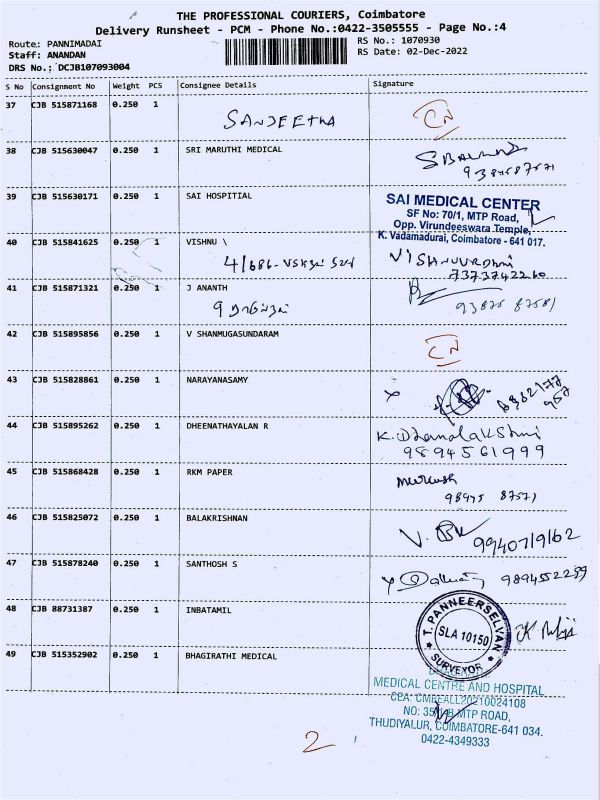 THE PROFESSIONAL COURIERS, Coimbatore
Delivery Runsheet - PCM - Phone No.:0422-3505555 - Page No.:4
Route: PANNIMADAI
RS No.: 1070930
Staff: ANANDAN
RS Date: 02-Dec-2022
DRS No.: DCJB107093004
S No Consignment No Weight PCS Consignee Details Signature
37 CJB 515871168 0.250 1 SANJEETHA CN
38 CJB 515630047 0.250 1 SRI MARUTHI MEDICAL
39 CJB 515630171 0.250 1 SAI HOSPITIAL
SAI MEDICAL CENTER
SF No: 70/1, MTP Road,
Opp. Virundeeswara Temple,
K. Vadamadurai, Coimbatore - 641 017.
40 CJB 515841625 0.250 1 VISHNU \
4/686-
7373742260
41 CJB 515871321 0.250 1 J ANANTH
9
42 CJB 515895856 0.250 1 V SHANMUGASUNDARAM CN
43 CJB 515828861 0.250 1 NARAYANASAMY
44 CJB 515895262 0.250 1 DHEENATHAYALAN R K. Dhanalakshmi
9894561999
45 CJB 515868428 0.250 1 RKM PAPER
98945 87571
46 CJB 515825072 0.250 1 BALAKRISHNAN
9940719162
47 CJB 515878240 0.250 1 SANTHOSH S 9894552289
48 CJB 88731387 0.250 1 INBATAMIL
T. PANNEERSELVAN
SLA 10150
★ SURVEYOR ★
49 CJB 515352902 0.250 1 BHAGIRATHI MEDICAL
MEDICAL CENTRE AND HOSPITAL
MTP ROAD,
THUDIYALUR, COIMBATORE-641 034.
0422-4349333
2